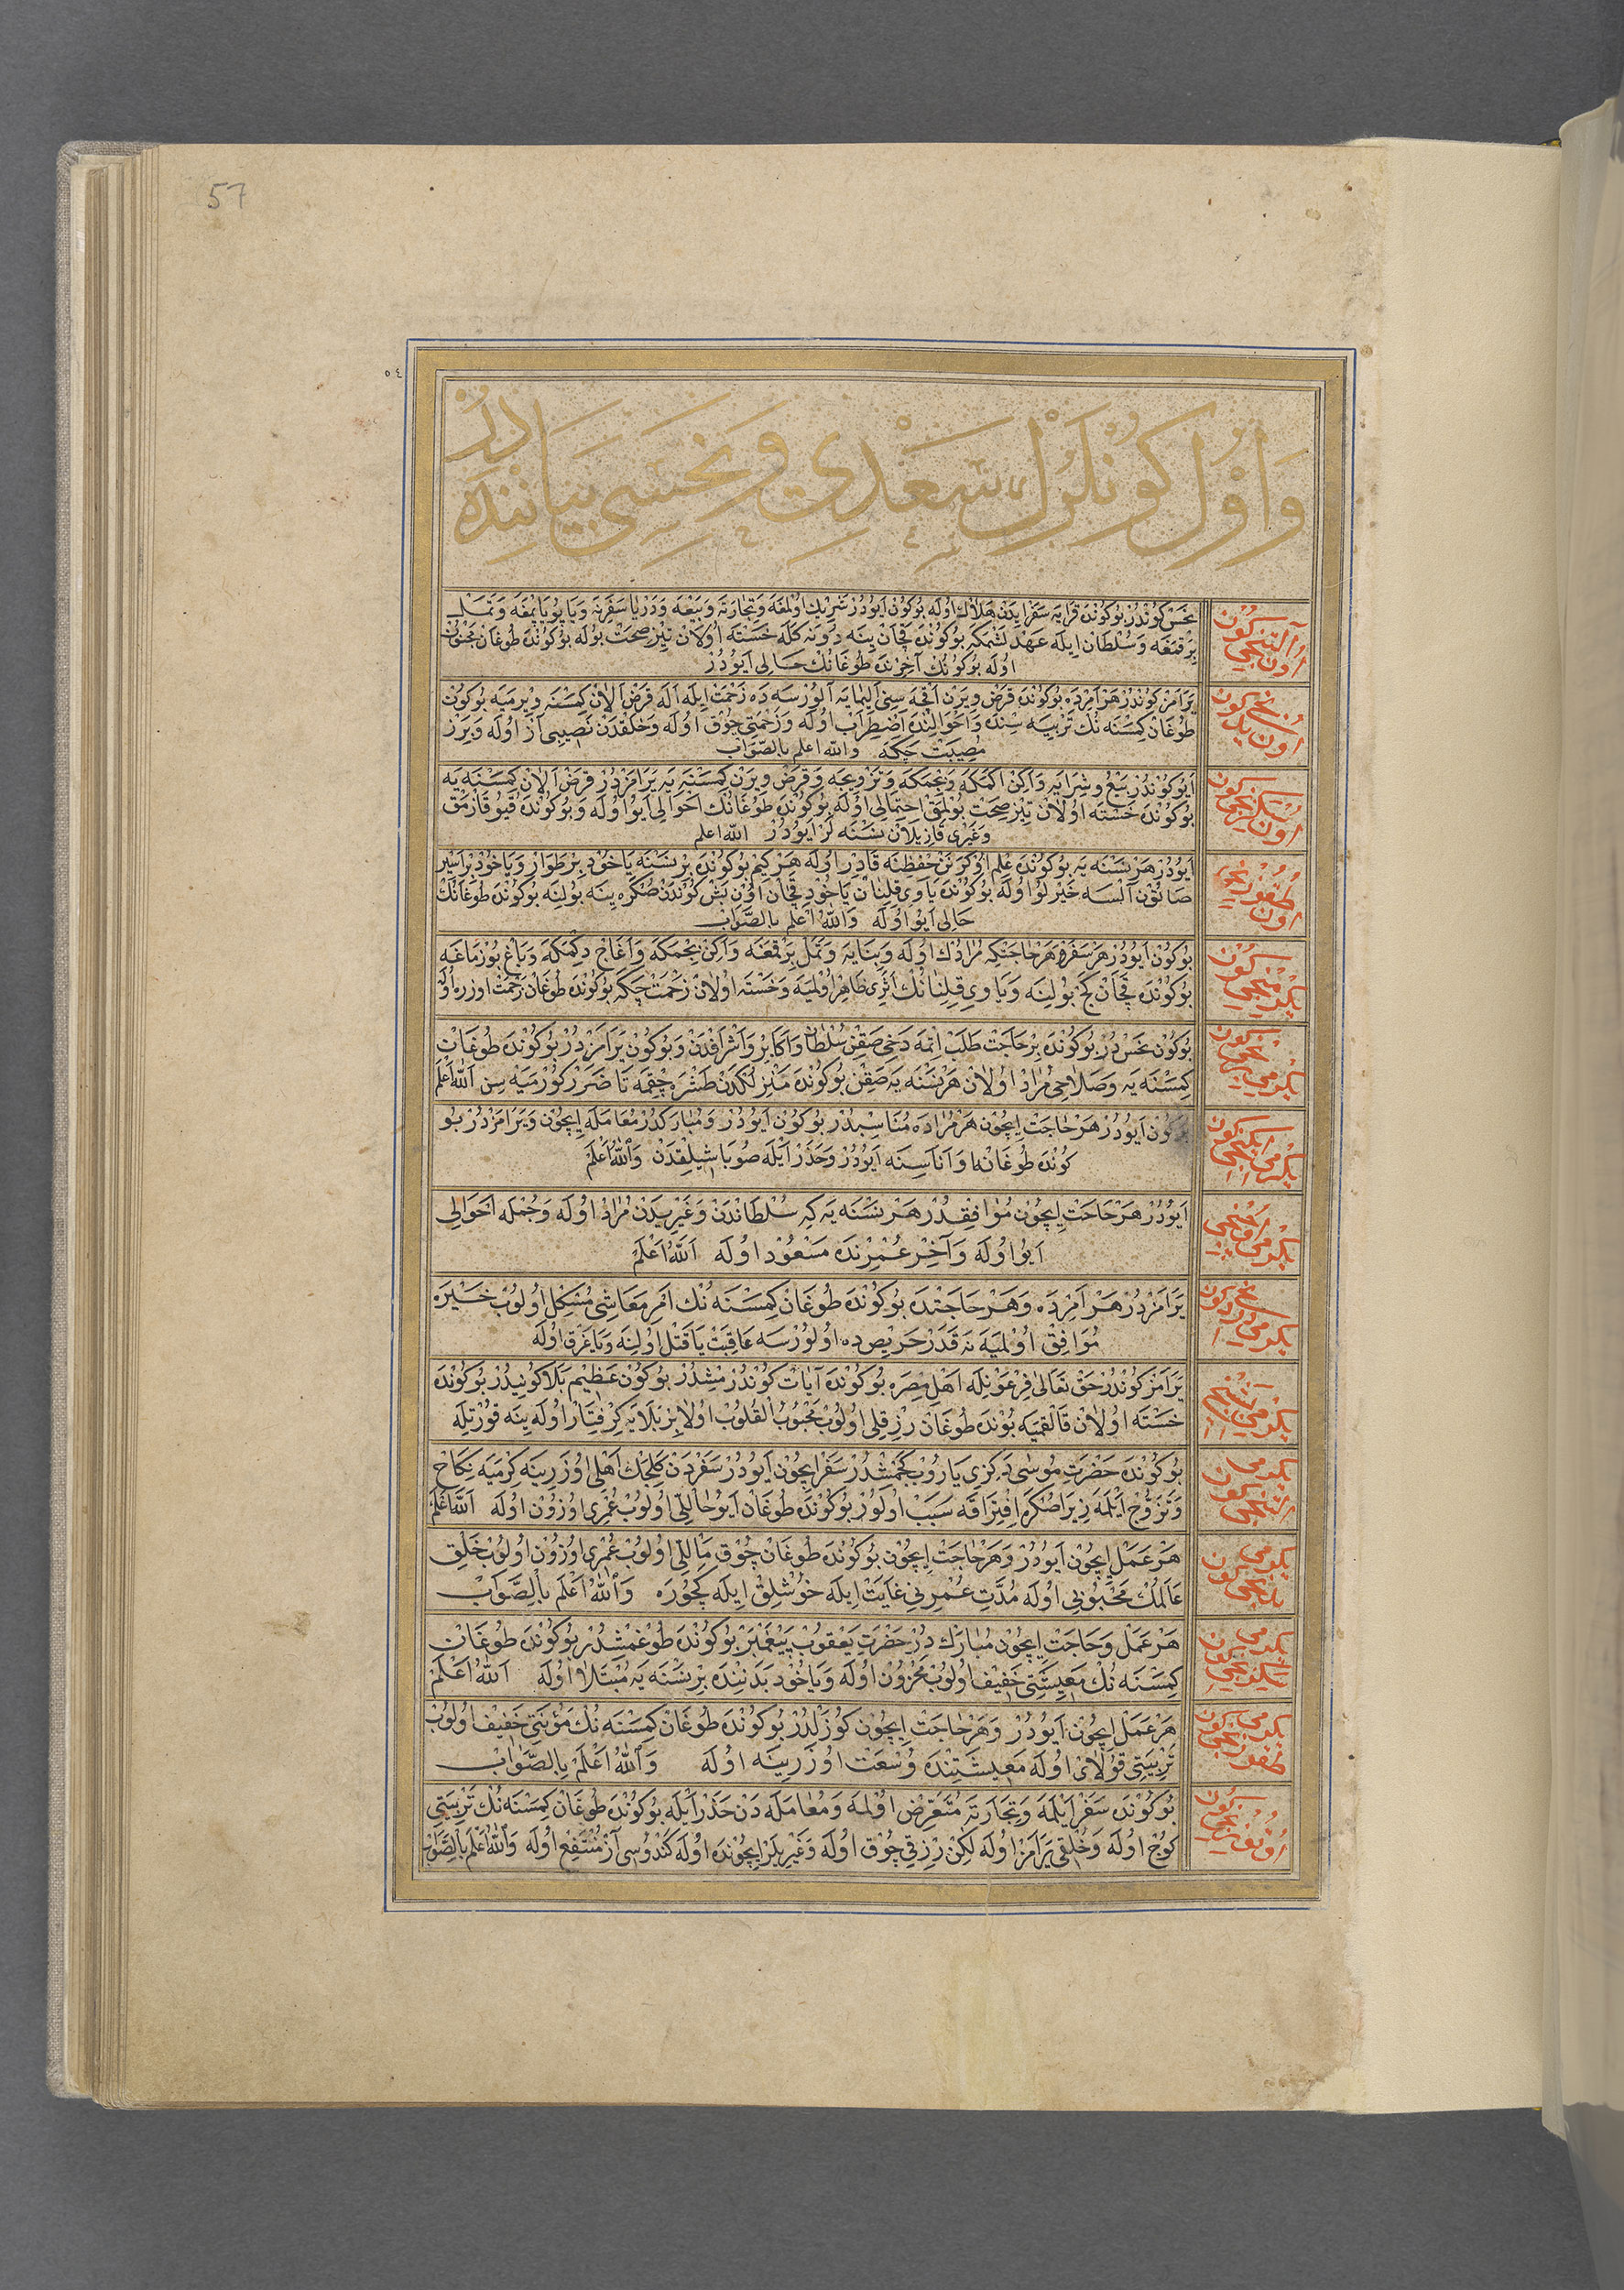 57
٥٤
وَاوُّلْ كُونْلَرُكْ سَعْدِى وَنَحْسِى بَيَانِنْدَه دُرْ
اون التنجى كون
نحس كوندر بوكونده قرايه سفر ايدن هلاك اوله بوكون ايودر شريك اولمغه وتجارته وبيعه ودريا سفرنه ويابو يابمغه وتمل
برقمغه وسلطان ايله عهد اتمكه بوكونده قچان ينه دونه كله خسته اولان تيز صحت بوله بوكونده طوغان مجنون
اوله بوكونك آخرنده طوغانك حالى ايودر
اون يدنجى كون
يرامز كوندر هر امرده بوكونده قرض ويرن اقچه سنى اليمايه آلورسه ده زحمت ايله اله قرض آلان كمسنه ويرميه بوكون
طوغان كمسنه نك تربيه سنده واحوالنده اضطراب اوله وزحمتى چوق اوله وخلقدن نصيبى از اوله وبرز
مصيبت چكه والله اعلم بالصواب
اون سكزنجى كون
ايو كوندر بيع وشرايه واكن اكمكه وبچمكه وتزويجه وقرض ويرن كمسنه يه يرامزدر قرض الان كمسنه يه
بوكونده خسته اولان تيز صحت بولمق احتمالى اوله بوكونده طوغانك احوالى ايو اوله وبوكونده قيو قازمق
وغيرى قازيلان نسنه لر ايودر الله اعلم
اون طقوزنجى
ايودر هر نسنه يه بوكونده علم اوكرنن حفظنه قادر اوله هر كيم بوكونده بر نسنه ياخود بر طوار وياخود بر اسير
صاتون آلسه خيرلو اوله بوكونده ياوى قلنان ياخود قچان اون بش كوندن صكره ينه بولنه بوكونده طوغانك
حالى ايو اوله والله اعلم بالصواب
يكرمنجى كون
بوكون ايودر هر سفره هر حاجتكه مرادك اوله وبنايه وتمل برقمغه واكن بچمكه واغاج دكمكه وباغ بوزماغه
بوكونده قچان كج بولنه وياوى قلنانك اثرى ظاهر اولميه وخسته اولان زحمت چكه بوكونده طوغان زحمت اوزره اوله
يكرمى برنجى كون
بوكون نحس در بوكونده بر حاجت طلب اتمه دخى صقن سلطان واكابر واشرافدن وبوكون يرامزدر بوكونده طوغان
كمسنه يه وصلاحى مراد اولان هر نسنه يه صقن بوكونده منزلكدن طشره چقمه تا ضرر كورميه سن الله اعلم
يكرمى ايكنجى كون
بوكون ايودر هر حاجت ايچون هر مراده مناسبدر بوكون ايودر ومباركدر معامله ايچون ويرامزدر بو
كونده طوغانه واناسنه ايودر وحذر ايله صوباشيلقدن والله اعلم
يكرمى اوچنجى
ايودر هر حاجت ايچون موافقدر هر نسنه يه كه سلطاندن وغيريدن مراد اوله وجمله احوالى
ايو اوله وآخر عمرنده مسعود اوله الله اعلم
يكرمى دردنجى كون
يرامزدر هر امرده وهر حاجتده بوكونده طوغان كمسنه نك امر معاشى مشكل اولوب خيره
موافق اولميه نه قدر حريص ده اولورسه عاقبت يا قتل اولنه ويا غرق اوله
يكرمى بشنجى
يرامز كوندر حق تعالى فرعونيله اهل مصره بوكونده آيات كوندرمشدر بوكون عظيم بلا كونيدر بوكونده
خسته اولان قالقميه بونده طوغان رزقلى اولوب محبوب القلوب اولا بر بلايه كرفتار اوله ينه قورتيله
يكرمى التنجى كون
بوكونده حضرت موسى دكزى ياروب كچمشدر سفر ايچون ايودر سفردن كلجك اهلى اوزرينه كرميه نكاح
وتزوج ايلمه زيرا صكره افتراقه سبب اولور بوكونده طوغان ايو حاللى اولوب عمرى اوزون اوله الله اعلم
يكرمى يدنجى كون
هر عمل ايچون ايودر وهر حاجت ايچون بوكونده طوغان چوق ماللى اولوب عمرى اوزون اولوب خلق
عالمك محبوبى اوله مدت عمرنى غايت ايله خوشلق ايله كچوره والله اعلم بالصواب
يكرمى سكزنجى كون
هر عمل وحاجت ايچون مبارك در حضرت يعقوب پيغمبر بوكونده طوغمشدر بوكونده طوغان
كمسنه نك معيشتى خفيف اولوب محزون اوله وياخود بدننده بر نسنه يه مبتلا اوله الله اعلم
يكرمى طقوزنجى كون
هر عمل ايچون ايودر وهر حاجت ايچون كوزلدر بوكونده طوغان كمسنه نك مؤنتى خفيف اولوب
تربيتى قولاى اوله معيشتنده وسعت اوزرينه اوله والله اعلم بالصواب
اوتوزنجى كون
بوكونده سفر ايلمه وتجارته متعرض اولمه ومعامله دن حذر ايله بوكونده طوغان كمسنه نك تربيتى
كوج اوله وخلقى يرامز اوله لكن رزقى چوق اوله وغيريلر ايچونده اوله كندوسى آز منتفع اوله والله اعلم بالصواب